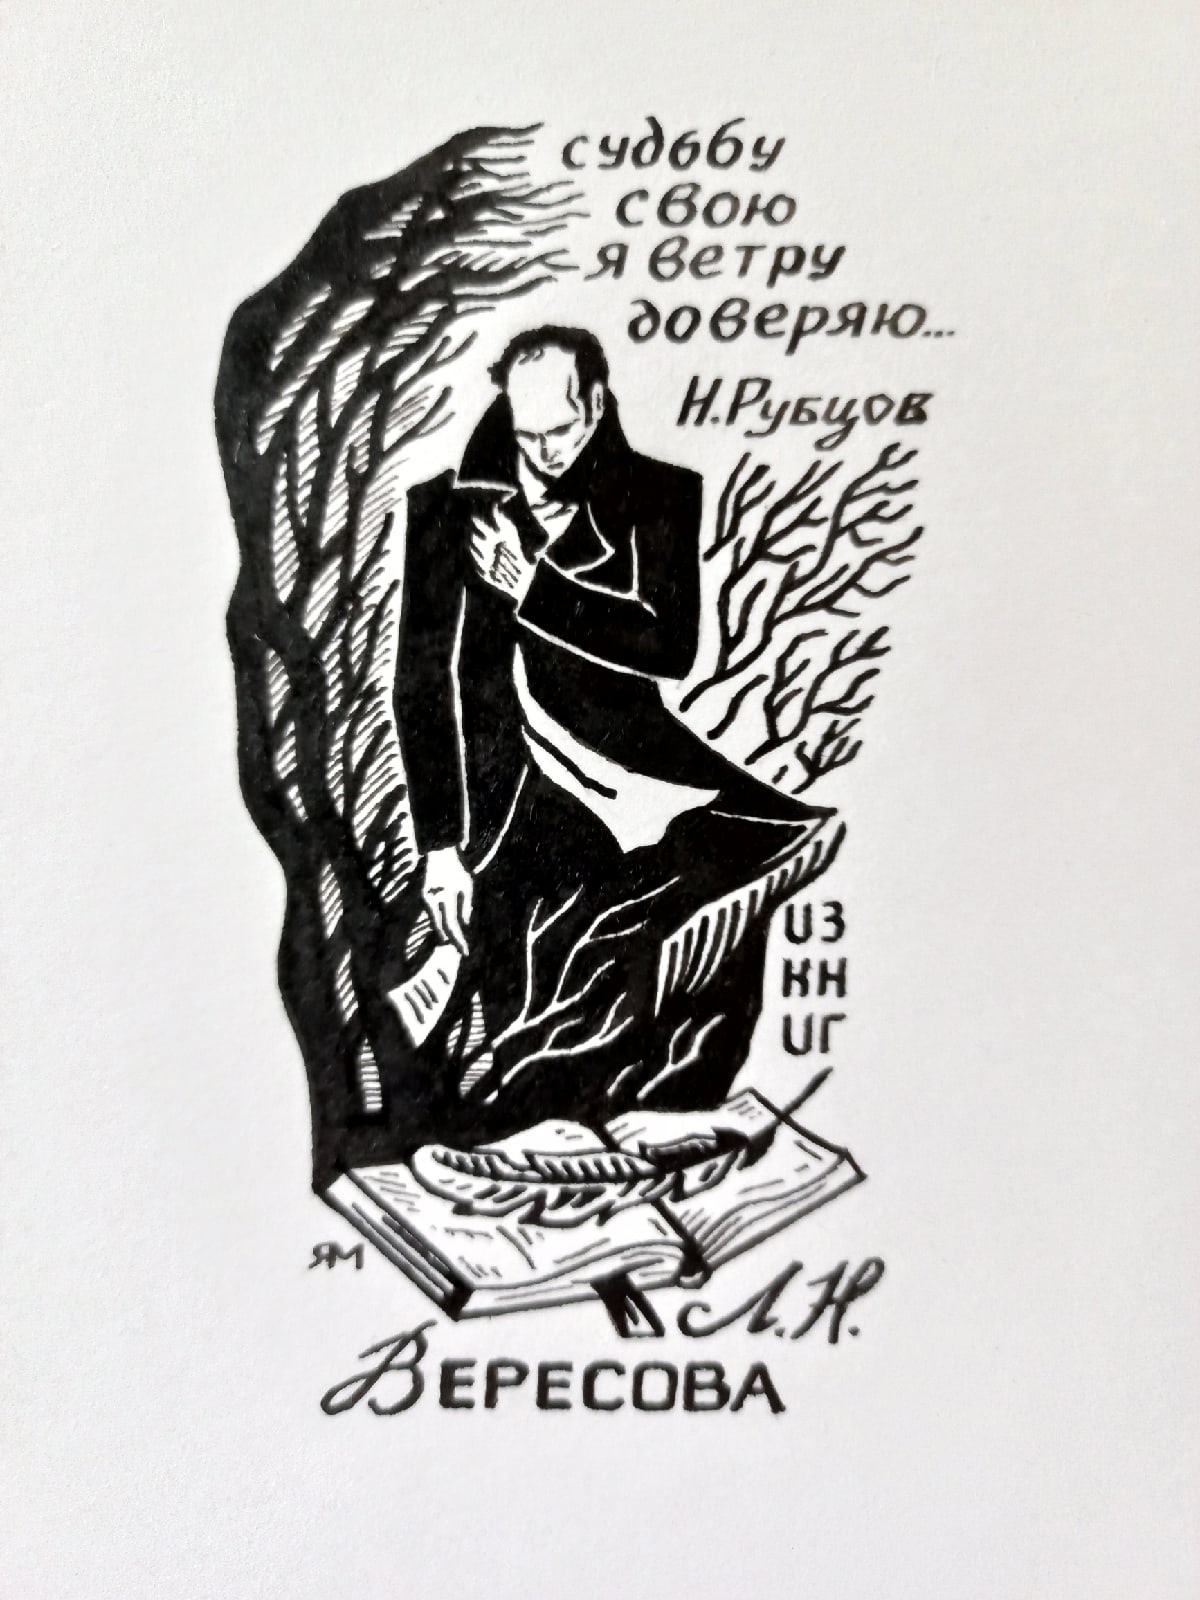 судьбу
свою
я ветру
доверяю...
Н.Рубцов
ИЗ
КН
ИГ
ЯМ
Л.Н.
ВЕРЕСОВА